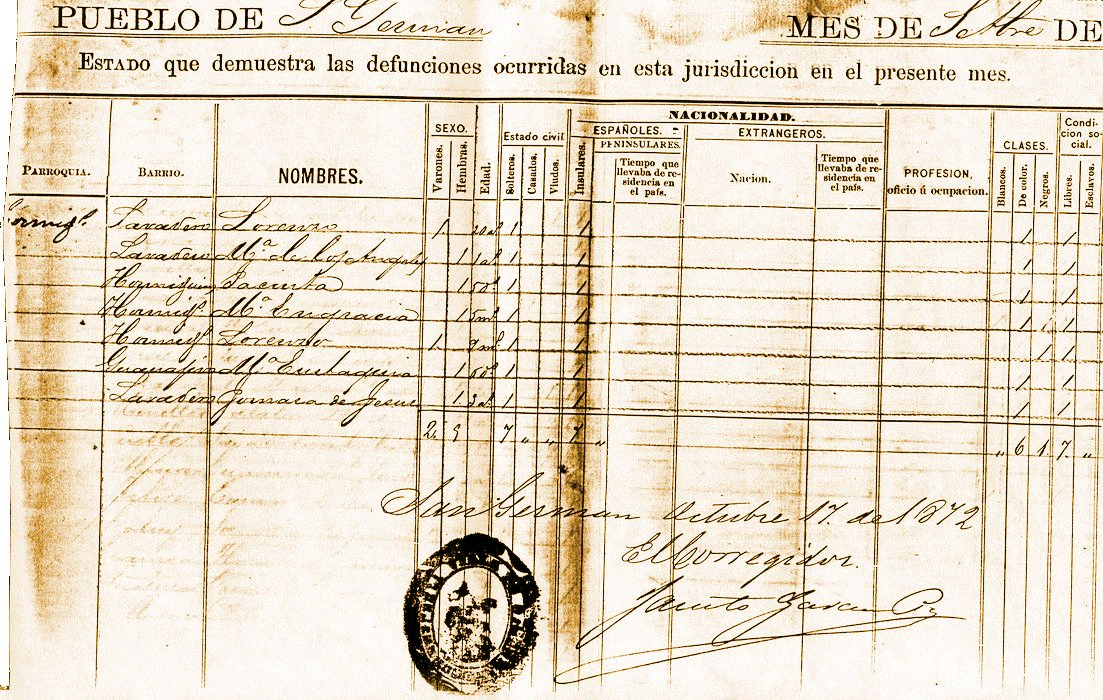 PUEBLO DE S. German MES DE Setbre DE
ESTADO que demuestra las defunciones ocurridas en esta jurisdiccion en el presente mes.
PARROQUIA. BARRIO. NOMBRES. SEXO. Varones. Hembras. Edad. Estado civil Solteros. Casados. Viudos. NACIONALIDAD. Insulares. ESPAÑOLES. PENINSULARES. Tiempo que llevaba de residencia en el país. EXTRANGEROS. Nacion. Tiempo que llevaba de residencia en el país. PROFESION, oficio ú ocupacion. CLASES. Blancos. De color. Negros. Condicion social. Libres. Esclavos.
Hormigs. Lavadero Lorenzo 1 1 1 1 1
Lavadero Ma. de los Angeles 1 1 1 1 1
Jacinta 1 1 1 1 1
Hormigs. Ma. Engracia 1 5 ms. 1 1 1 1
Hormigs. Lorenzo 1 9 ms. 1 1 1 1
Ma. Eustaquia 1 1 1 1 1
Lavadero de Jesus 1 1 1 1 1
2 5 7 " " 7 " " 6 1 7 "
San German Octubre 17. de 1872
El Corregidor.